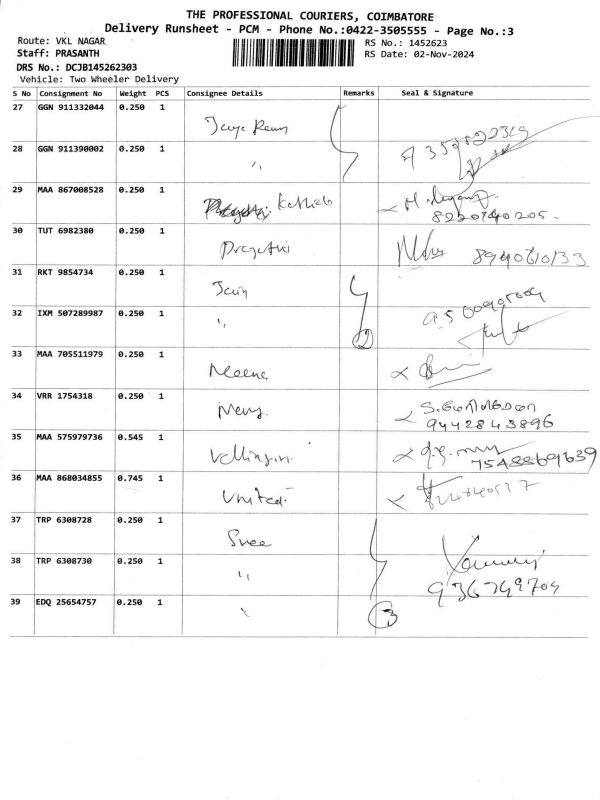 THE PROFESSIONAL COURIERS, COIMBATORE
Delivery Runsheet - PCM - Phone No.:0422-3505555 - Page No.:3
Route: VKL NAGAR
RS No.: 1452623
Staff: PRASANTH
RS Date: 02-Nov-2024
DRS No.: DCJB145262303
Vehicle: Two Wheeler Delivery
S No Consignment No Weight PCS Consignee Details Remarks Seal & Signature
27 GGN 911332044 0.250 1
28 GGN 911390002 0.250 1 "
29 MAA 867008528 0.250 1
8220740205.
30 TUT 6982380 0.250 1 Pragathi
31 RKT 9854734 0.250 1 Jain
32 IXM 507289987 0.250 1 " 2
33 MAA 705511979 0.250 1 Meena
34 VRR 1754318 0.250 1
9442843896
35 MAA 575979736 0.545 1 Vellingiri
7548869639
36 MAA 868034855 0.745 1 United
37 TRP 6308728 0.250 1 Sree
38 TRP 6308730 0.250 1 "
936749704
39 EDQ 25654757 0.250 1 " 3